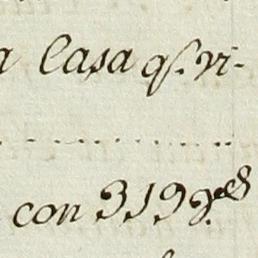 a Casa qe. vi-
con 319 rs.